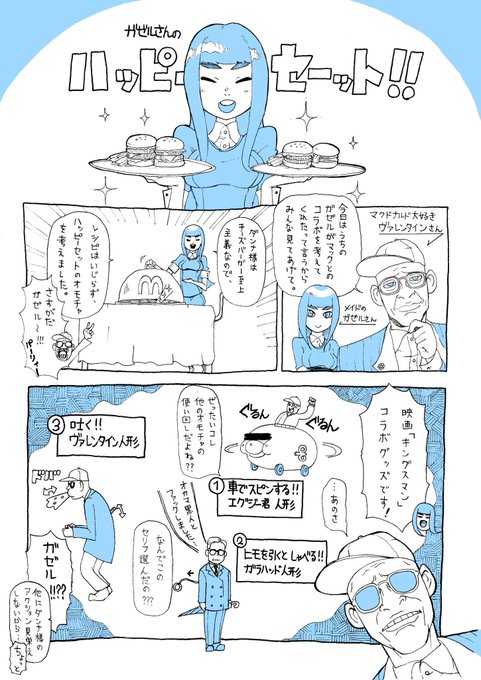 ガゼルさんの
ハッピーセーット!!
マクドナルド大好き
ヴァレンタインさん
今日はうちの
ガゼルがマックとの
コラボを考えて
くれたって言うから
みんな見てあげて。
メイドの
ガゼルさん
ダンナ様は
チーズバーガー至上
主義なので、
レシピはいじらず
ハッピーセットのオモチャ
を考えました。
さすがだ
ガゼル〜!!!
パーリィー
映画「キングスマン」
コラボグッズです!
ぐるん
ぐるん
ぜったいコレ
他のオモチャの
使い回しだよね??
①車でスピンする!!
エグジー君 人形
…あのさ
②ヒモを引くとしゃべる!!
ガラハッド人形
オカマ黒人と
ファックしました。
なんでこの
セリフ選んだの???
③吐く!!
ヴァレンタイン人形
ドバババ
ガゼル
!!??
他にダンナ様の
アクション見栄え
しないから…ちょっと